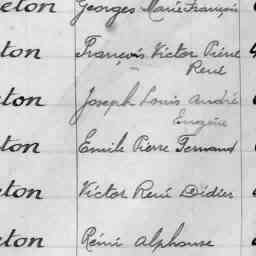 eton Georges Marie François
eton François Victor Pierre
René
eton Joseph Louis André
Eugène
eton Emile Pierre Fernand
eton Victor René Didier
eton Rémi Alphonse